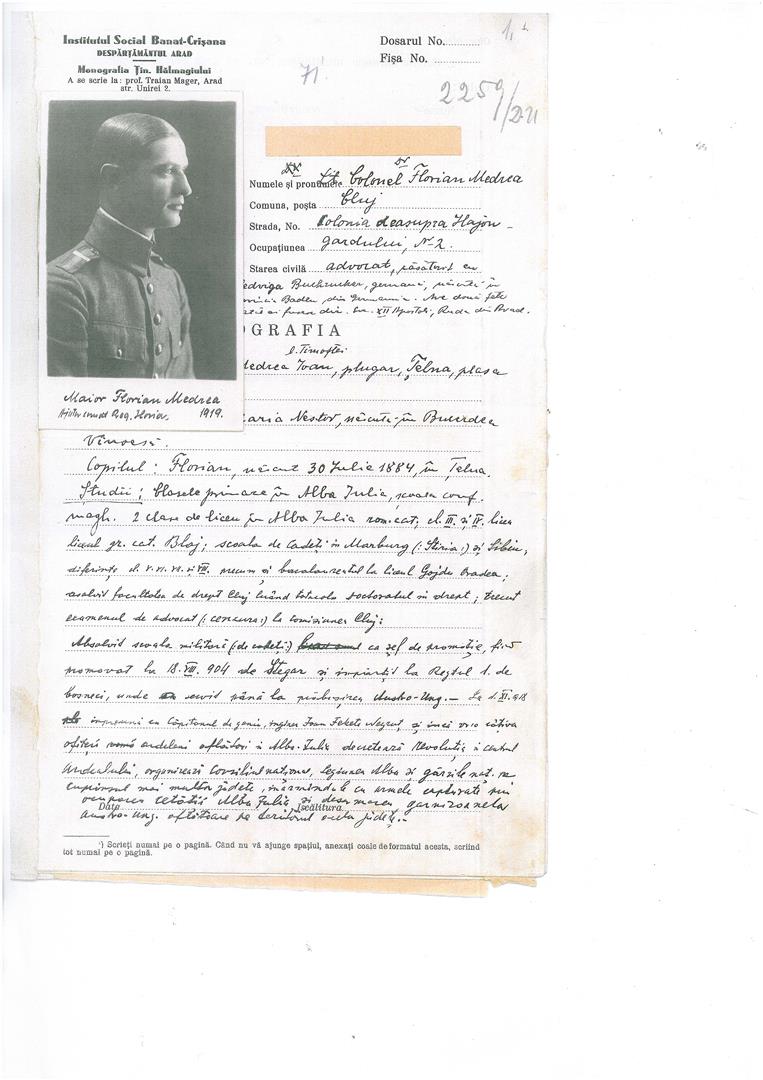 Institutul Social Banat-Crișana
DESPĂRȚĂMÂNTUL ARAD
Monografia Ţin. Hălmagiului
A se scrie la: prof. Traian Mager, Arad
str. Unirei 2.
Dosarul No.
Fișa No.
1,
71
2259/
Numele și pronumele Lt. Colonel Dr Florian Medrea
Comuna, poșta Cluj
Strada, No. Colonia deasupra Hajon-
gardului, N. 2.
Ocupațiunea
Starea civilă advocat, căsătorit cu
Buchrucker, germană, născută în
Baden, din Germania. Are două fete
XII Apostoli, din Brad.
OGRAFIA
l. Timoftei
Medrea Ioan, plugar, Țelna, plasa
Maria Nestor, născută în Bucerdea
Vinoasă.
Maior Florian Medrea
Reg. Horia. 1919.
Copilul: Florian, născut 30 Iulie 1884, în Țelna.
Studii: Clasele primare în Alba Iulia, școala conf.
magh. 2 clase de liceu în Alba Iulia rom. cat; cl. III. și IV. licea
liceul gr. cat. Blaj; scoala de Cadeți in Marburg (: Stiria:) si Sibiu,
diferințe cl. V. VI. VII. si VIII, precum si bacalaureatul la liceul Gojdu Oradea;
asolvit facultatea de drept Cluj luând totacolo doctoratul in drept; trecut
examenul de advocat (: cenzura:) la comisiunea Cluj:
Absolvit scoala militară (: de cadeți:) ca șef de promoție, fiind
promovat la 18. VIII. 904 de Stegar si impărțit la Regtul 1. de
bosneci, unde servit până la prăbușirea Austro-Ung. — La 1. XI. 918
impreună cu Căpitanul de geniu, inginer Ioan Fekete Negruț, și încă vre-o câțiva
ofițeri romă ardeleni aflători i Alba-Iulia decretează revoluția i centrul
Ardealului, organizează Consiliul national, Legiunea Alba și gărzile naț. pe
cuprinsul mai multor județe, inarmându-le cu armele capturate prin
ocuparea cetății Alba Iulia si desarmarea garnizoanelor
Data Iscălitura
austro-ung. aflătoare pe teritorul județ. —
¹) Scrieți numai pe o pagină. Când nu vă ajunge spațiul, anexați coale de formatul acesta, scriind
tot numai pe o pagină.